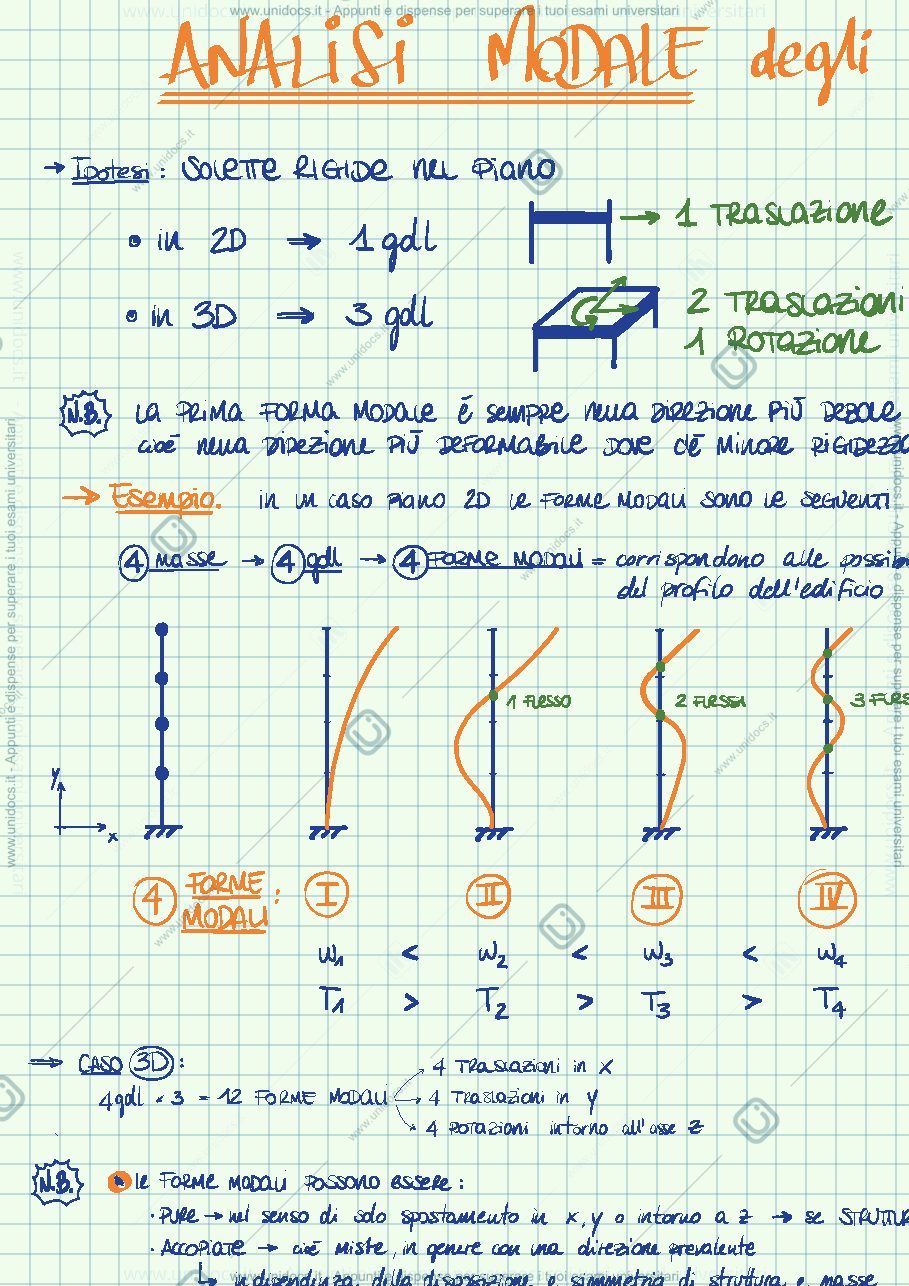 www.unidocs.it - Appunti e dispense per superare i tuoi esami universitari
ANALISI MODALE degli
→ Ipotesi: SOLETTE RIGIDE NEL PIANO
• in 2D ⇒ 1 gdl
→ 1 TRASLAZIONE
• in 3D ⇒ 3 gdl
2 TRASLAZIONI
1 ROTAZIONE
N.B. LA PRIMA FORMA MODALE è sempre nella DIREZIONE PIÙ DEBOLE
cioè nella DIREZIONE PIÙ DEFORMABILE DOVE c'è MINORE RIGIDEZZA
→ Esempio. in un caso piano 2D le FORME MODALI SONO le SEGUENTI
4 masse → 4 gdl → 4 FORME MODALI = corrispondono alle
del profilo dell'edificio
1 FLESSO
2 FLESSI
3
y
x
4 FORME MODALI: I II III IV
ω1 < ω2 < ω3 < ω4
T1 > T2 > T3 > T4
⇒ CASO 3D:
4 TRASLAZIONI in X
4gdl × 3 = 12 FORME MODALI → 4 TRASLAZIONI in y
4 ROTAZIONI intorno all'asse Z
N.B. • le FORME MODALI POSSONO ESSERE:
· PURE → nel senso di solo spostamento in x, y o intorno a z → se
· ACCOPIATE → cioè miste, in genere con una direzione prevalente
↳ in dipendenza della disposizione e simmetria di struttura e masse